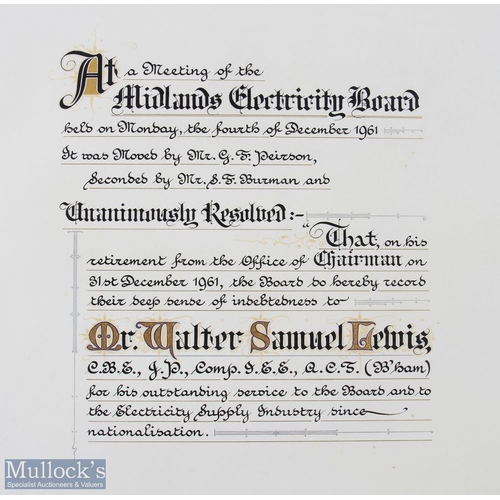 At a Meeting of the
Midlands Electricity Board
held on Monday, the fourth of December 1961
It was Moved by Mr. G. F. Peirson,
Seconded by Mr. S. F. Burman and
Unanimously Resolved:-
"That, on his
retirement from the Office of Chairman on
31st December 1961, the Board do hereby record
their deep sense of indebtedness to
Mr. Walter Samuel Lewis,
C.B.E., J.P., Comp. I.E.E., A.C.T. (B'ham)
for his outstanding service to the Board and to
the Electricity Supply Industry since
nationalisation.
Mullock's
Specialist Auctioneers & Valuers